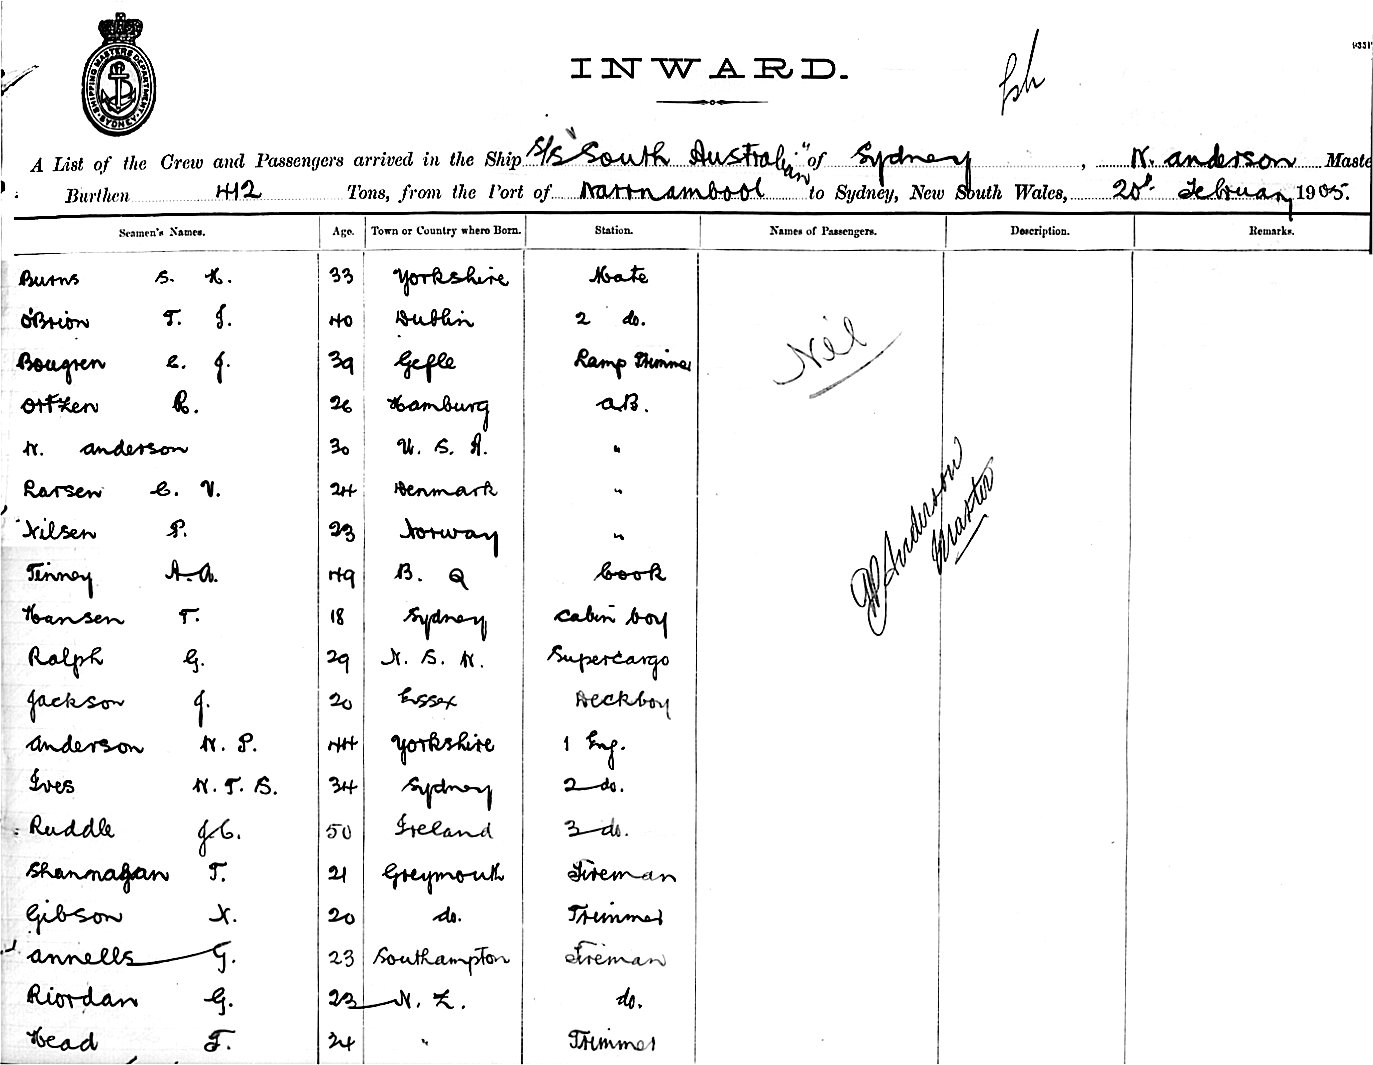 SHIPPING MASTERS DEPARTMENT SYDNEY
INWARD.
A List of the Crew and Passengers arrived in the Ship S/S "South Australian" of Sydney, W. Anderson Maste
Burthen 412 Tons, from the Port of Warrnambool to Sydney, New South Wales, 20th February 1905.
Seamen's Names. Age. Town or Country where Born. Station. Names of Passengers. Description. Remarks.
Burns S. H. 33 Yorkshire Mate
O'Brion T. J. 40 Dublin 2 do. Nil
Bougren C. J. 39 Gefle Lamp Trimmer
Ortzen R. 26 Hamburg A.B.
N. Anderson 30 U. S. A. "
Larsen C. V. 24 Denmark "
Nilsen P. 23 Norway "
Tinney A. A. 49 B. G Cook
Hansen T. 18 Sydney Cabin boy
Ralph G. 29 N. S. W. Supercargo
Jackson J. 20 Essex Deckboy
Anderson W. P. 44 Yorkshire 1 Eng.
Ives W. T. S. 34 Sydney 2 do.
Ruddle J. C. 50 Ireland 3 do.
Shannagan T. 21 Greymouth Fireman
Gibson 20 do. Trimmer
Annells G. 23 Southampton Fireman
Riordan G. 23 N. Z. do.
Head F. 24 " Trimmer
Anderson
Master